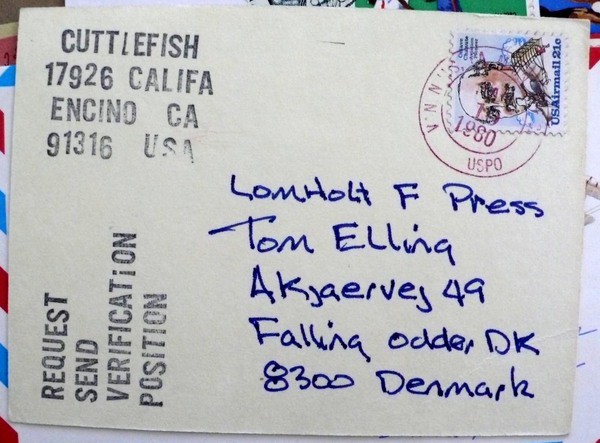 CUTTLEFISH
17926 CALIFA
ENCINO CA
91316 USA
USAirmail 21c
1980
USPO
LomHolt F Press
Tom Elling
Akjaervej 49
Falling odder DK
8300 Denmark
REQUEST
SEND
VERIFICATION
POSITION